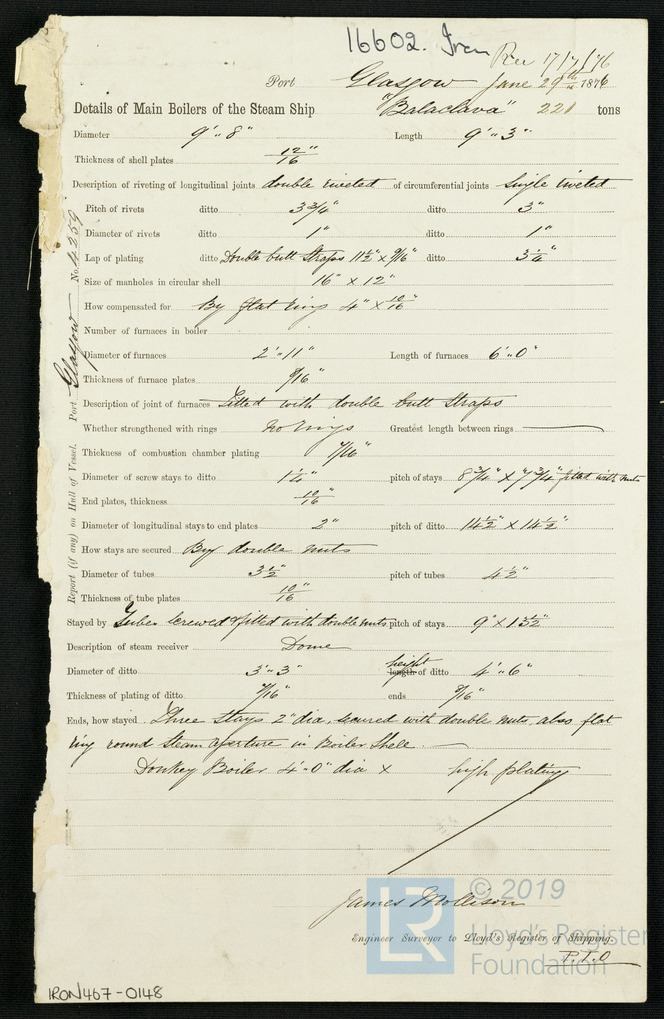 16602. Iron
Rec 17/7/76
Port Glasgow June 29th 1876
Details of Main Boilers of the Steam Ship "Balaclava" 221 tons
Diameter 9'.. 8" Length 9'.. 3"
Thickness of shell plates 12/16"
Description of riveting of longitudinal joints double riveted of circumferential joints Single riveted
Pitch of rivets ditto 3 3/4" ditto 3"
Diameter of rivets ditto 1" ditto 1"
Lap of plating ditto Double butt Straps 11 1/2" x 9/16" ditto 3 1/4"
Size of manholes in circular shell 16" x 12"
How compensated for By flat ring 4" x 10/16"
Number of furnaces in boiler
Diameter of furnaces 2'.. 11" Length of furnaces 6'.. 0"
Thickness of furnace plates 9/16"
Description of joint of furnaces Fitted with double butt Straps
Whether strengthened with rings No rings Greatest length between rings
Thickness of combustion chamber plating 7/16"
Diameter of screw stays to ditto 1 1/4" pitch of stays 8 3/4" x 7 3/4" fitted with nuts
End plates, thickness 10/16"
Diameter of longitudinal stays to end plates 2" pitch of ditto 14 1/2" x 14 1/2"
How stays are secured By double nuts
Diameter of tubes 3 1/2" pitch of tubes 4 1/2"
Thickness of tube plates 10/16"
Stayed by Tubes screwed & fitted with double nuts pitch of stays 9" x 13 1/2"
Description of steam receiver Dome
Diameter of ditto 3'.. 3" height length of ditto 4'.. 6"
Thickness of plating of ditto 7/16" ends 9/16"
Ends, how stayed Three Stays 2" dia, secured with double nuts, also flat
ring round Steam aperture in Boiler Shell.
Donkey Boiler 4'.. 0" dia x high plating
James Mollison
Engineer Surveyor to Lloyd's Register of Shipping.
P.T.O
Report (if any) on Hull of Vessel. Port Glasgow No. 4259
© 2019
LR
Lloyd's Register
Foundation
IRON467-0148